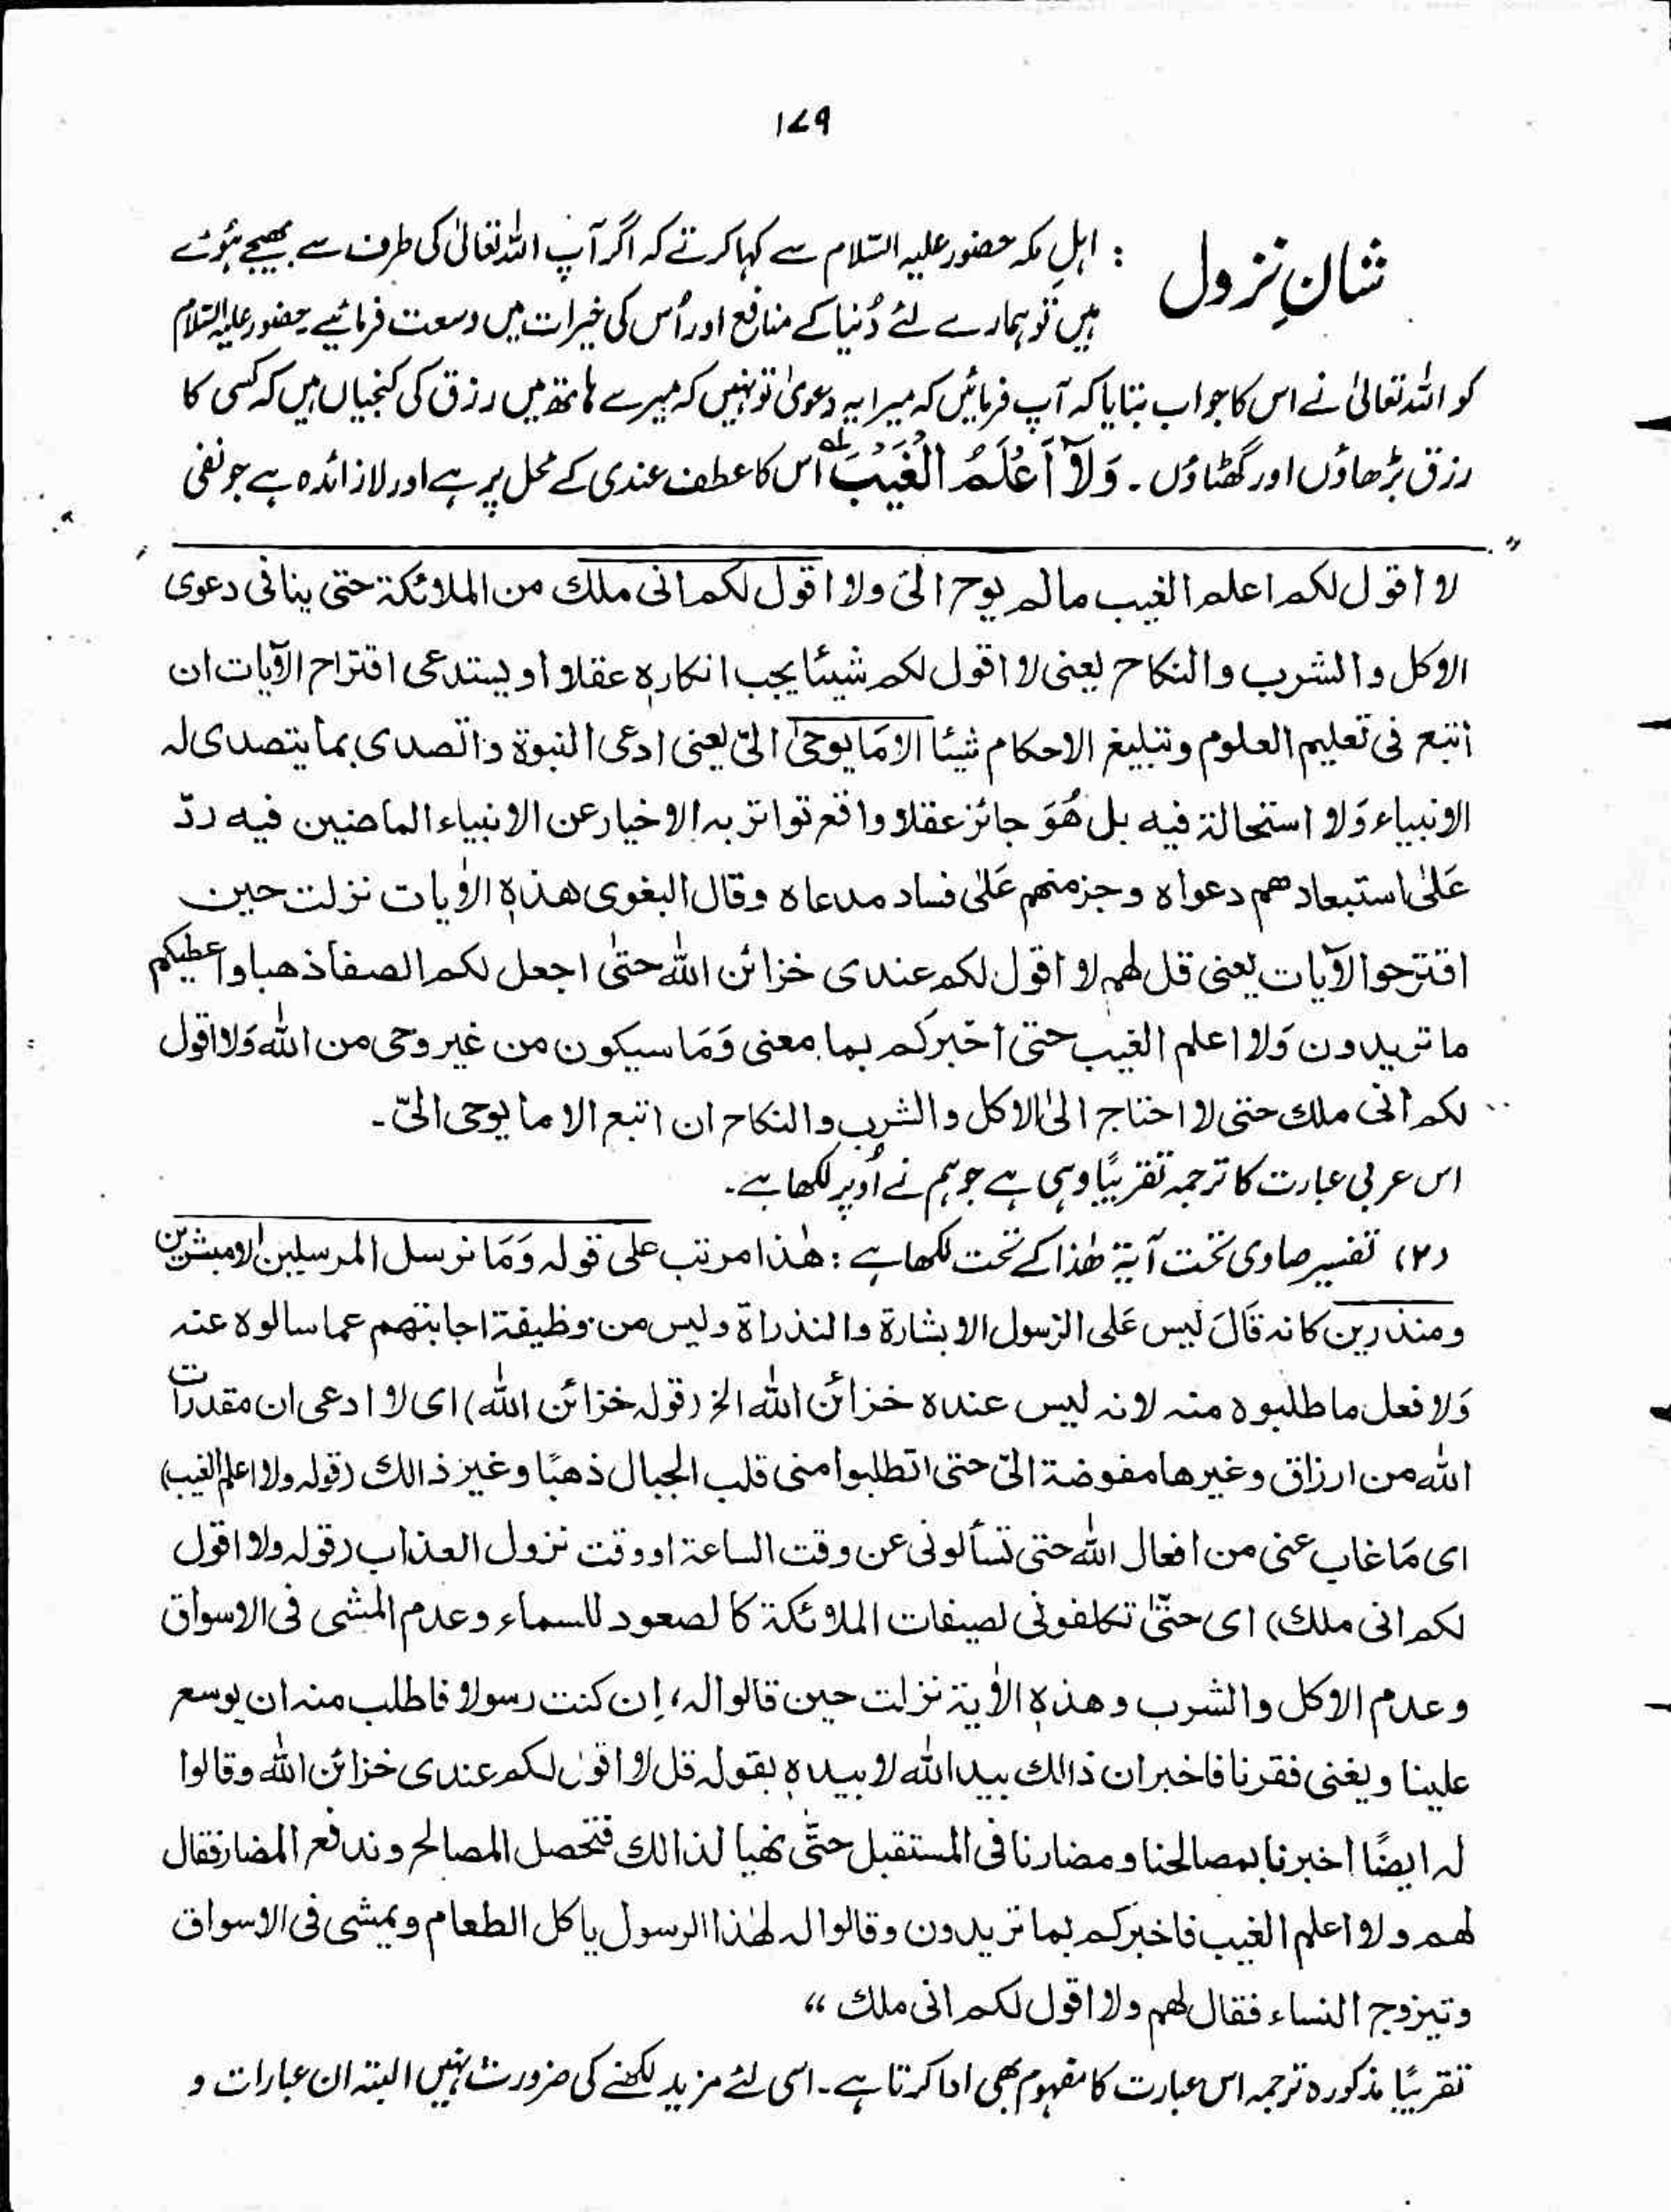 ۱۷۹
شانِ نزول : اہلِ مکہ حضور علیہ السّلام سے کہا کرتے کہ اگر آپ اللہ تعالیٰ کی طرف سے بھیجے ہُوئے
ہیں تو ہمارے لئے دُنیا کے منافع اور اُس کی خیرات میں وسعت فرمائیے۔ حضور علیہ السّلام
کو اللہ تعالیٰ نے اس کا جواب بتایا کہ آپ فرمائیں کہ میرا یہ دعویٰ تو نہیں کہ میرے ہاتھ میں رزق کی کنجیاں ہیں کہ کسی کا
رزق بڑھاؤں اور گھٹاؤں۔ وَلَآ اَعْلَمُ الْغَیْبَ لہ اس کا عطف عندی کے محل پر ہے اور لا زائدہ ہے جو نفی
لا اقول لکم اعلم الغیب مالم یوح الیّ ولا اقول لکم انی ملك من الملائکۃ حتی ینافی دعوی
الاکل والشرب والنکاح یعنی لا اقول لکم شیئا یجب انکارہٖ عقلا او یستدعی اقتراح الآیات ان
اتبع فی تعلیم العلوم وتبلیغ الاحکام شیئا الا مَا یوحیٰ الیّ یعنی ادعی النبوۃ واتصدی بما یتصدی لہ
الانبیاء وَلا استحالۃ فیہ بل ھُوَ جائز عقلا واقع تواتر بہ الاخبار عن الانبیاء الماضین فیہ ردّ
عَلیٰ استبعادھم دعواہ وجزمنھم عَلیٰ فساد مدعاہ وقال البغوی ھذہٖ الاٰیات نزلت حین
اقترحوا الآیات یعنی قل لھم لا اقول لکم عندی خزائن اللہ حتیٰ اجعل لکم الصفا ذھبا واعطیکم
ما تریدون وَلا اعلم الغیب حتی اخبرکم بما معنی وَمَا سیکون من غیر وحی من اللہ وَلا اقول
لکم انی ملك حتی لا احتاج الیٰ الاکل والشرب والنکاح ان اتبع الا ما یوحی الیّ۔
اس عربی عبارت کا ترجمہ تقریبًا وہی ہے جو ہم نے اُوپر لکھا ہے۔
(۲) تفسیر صاوی تحت آیۃ ھٰذا کے تحت لکھا ہے : ھٰذا مرتب علی قولہ وَمَا نرسل المرسلین الا مبشرین
ومنذرین کانہ قَالَ لیس عَلی الرّسول الا بشارۃ والنذراۃ ولیس من وظیفۃ اجابتھم عما سالوہ عنہ
وَلا فعل ما طلبوہ منہ لانہ لیس عندہ خزائن اللہ الخ (قولہ خزائن اللہ) ای لا ادعی ان مقدرات
اللہ من ارزاق وغیرھا مفوضۃ الیّ حتی اتطلبوا منی قلب الجبال ذھبًا وغیر ذالك (قولہ ولا اعلم الغیب)
ای مَا غاب عنی من افعال اللہ حتی تسألونی عن وقت الساعۃ او وقت نزول العذاب (قولہ ولا اقول
لکم انی ملك) ای حتّٰی تکلفونی لصیفات الملائکۃ کا لصعود للسماء وعدم المشی فی الاسواق
وعدم الاکل والشرب وھذہٖ الاٰیۃ نزلت حین قالوا لہ، اِن کنت رسولا فاطلب منہ ان یوسع
علینا ویغنی فقرنا فاخبر ان ذالك بید اللہ لا بیدہٖ بقولہ قل لا اقول لکم عندی خزائن اللہ وقالوا
لہ ایضًا اخبرنا بمصالحنا ومضارنا فی المستقبل حتّٰی نھیا لذالك فتحصل المصالح وندفع المضار فقال
لھم ولا اعلم الغیب فاخبرکم بما تریدون وقالوا لہ لھٰذا الرسول یاکل الطعام ویمشی فی الاسواق
وتیزوج النساء فقال لھم ولا اقول لکم انی ملك “
تقریبًا مذکورہ ترجمہ اس عبارت کا مفہوم بھی ادا کرتا ہے۔ اسی لئے مزید لکھنے کی ضرورت نہیں البتہ ان عبارات و